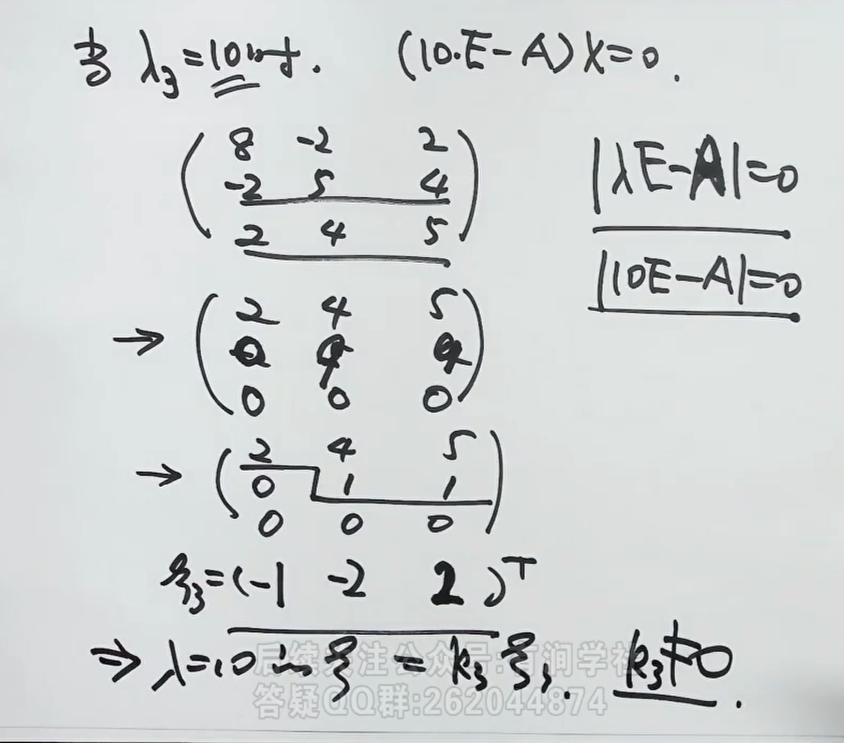 当 λ₃=10时. (10·E-A)X=0.
8 -2 2
-2 5 4
2 4 5
|λE-A|=0
|10E-A|=0
→ 2 4 5
0 9 9
0 0 0
→ 2 4 5
0 1 1
0 0 0
ξ₃=(-1 -2 2)ᵀ
⇒ λ=10 ξ = k₃ξ₃. k₃≠0.
后续关注公众号:有涧学社
答疑QQ群:262044874